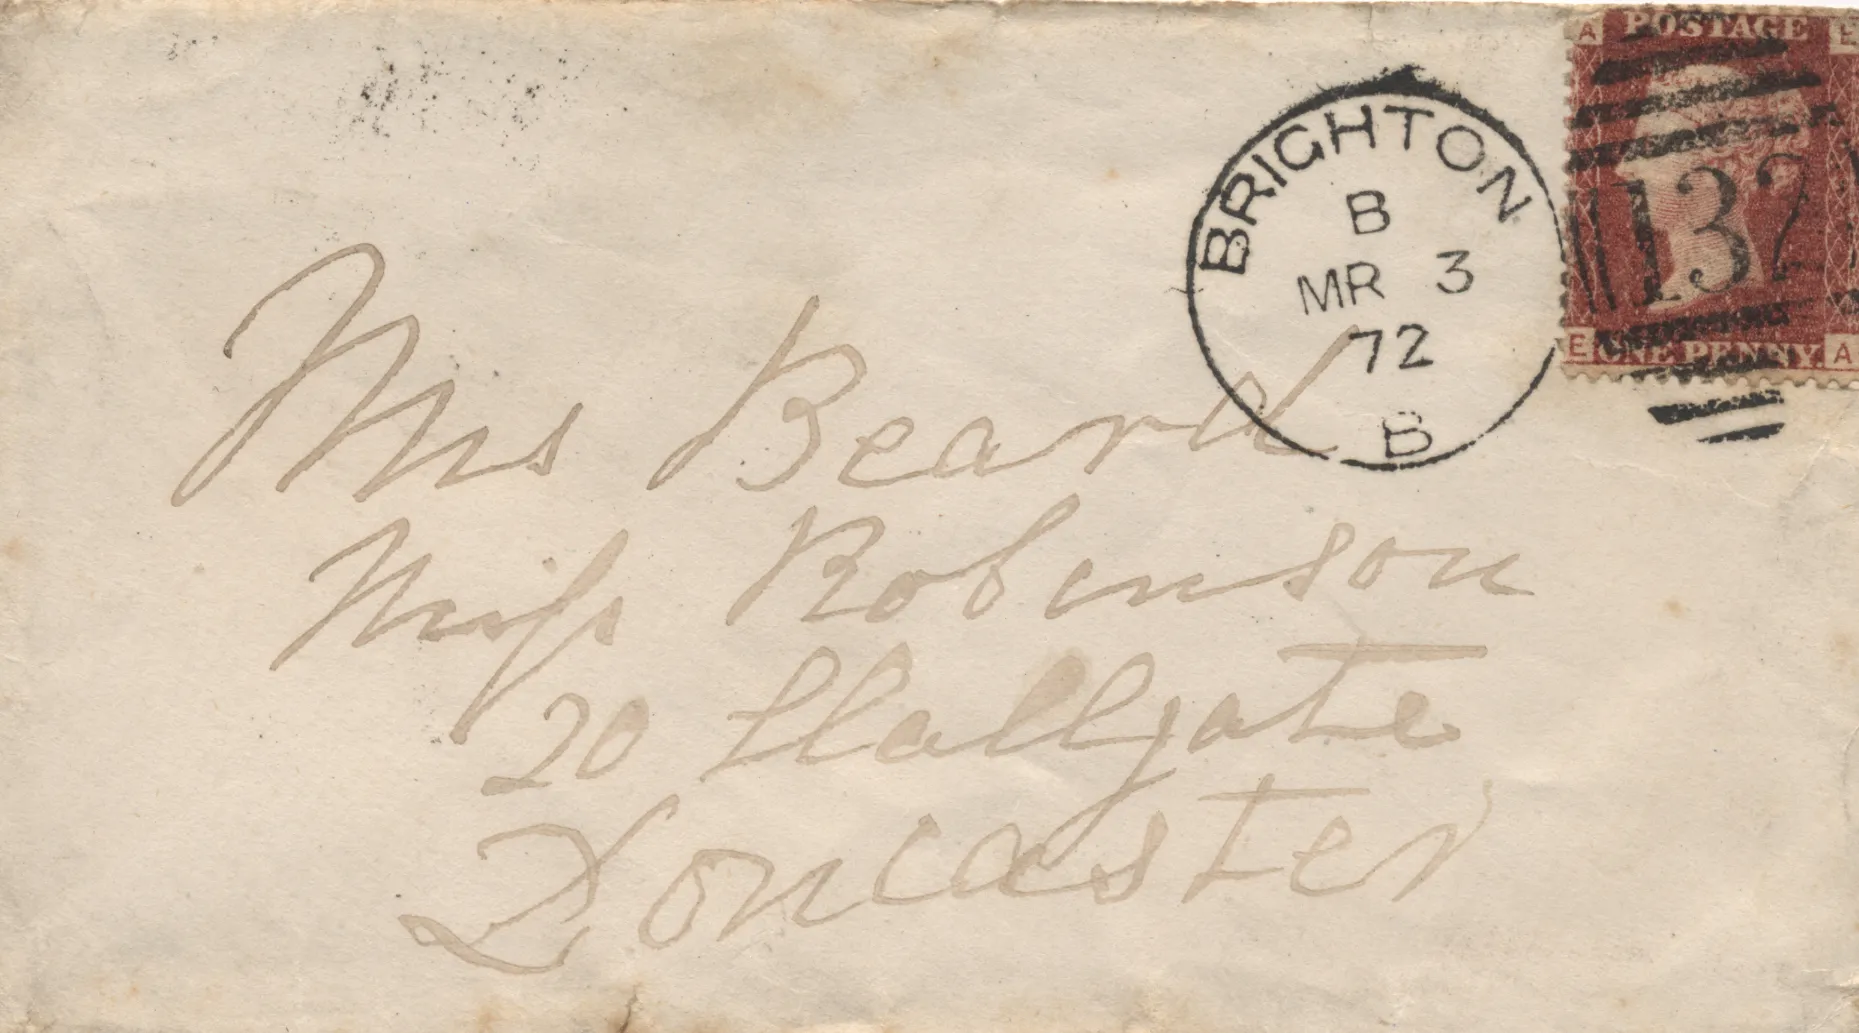 A POSTAGE E
BRIGHTON
B
MR 3
72
B
132
E ONE PENNY. A
Mrs Beard
Miss Robinson
20 Hallgate
Doncaster